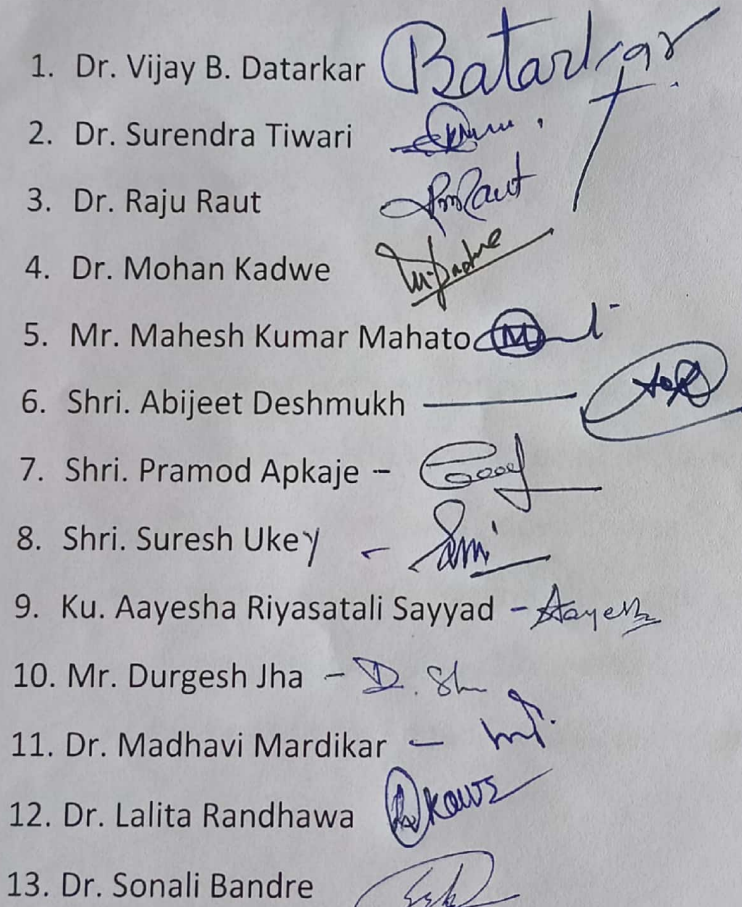 1. Dr. Vijay B. Datarkar Batarkar
2. Dr. Surendra Tiwari
3. Dr. Raju Raut RmRaut
4. Dr. Mohan Kadwe
5. Mr. Mahesh Kumar Mahato
6. Shri. Abijeet Deshmukh
7. Shri. Pramod Apkaje –
8. Shri. Suresh Ukey –
9. Ku. Aayesha Riyasatali Sayyad – Aayesh
10. Mr. Durgesh Jha –
11. Dr. Madhavi Mardikar –
12. Dr. Lalita Randhawa
13. Dr. Sonali Bandre